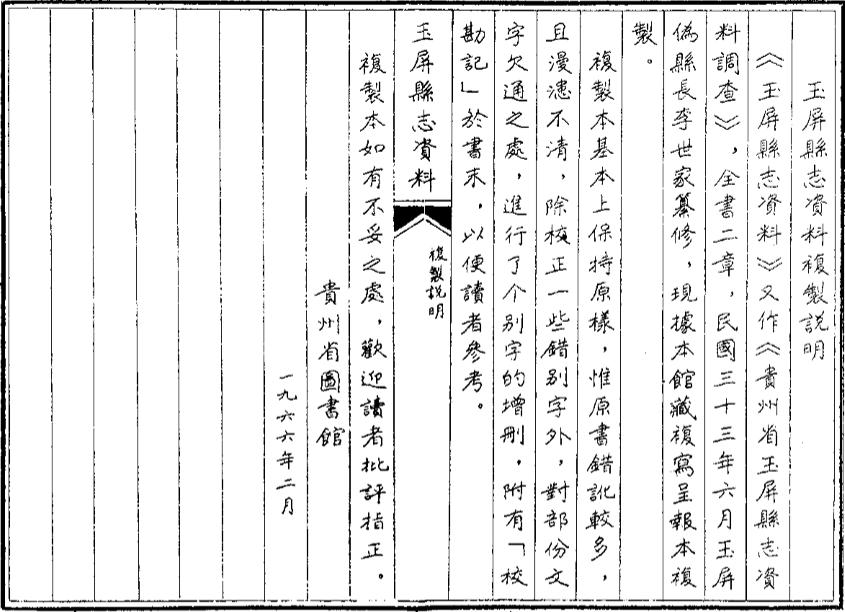 玉屏縣志資料複製說明
《玉屏縣志資料》又作《貴州省玉屏縣志資
料調查》，全書二章，民國三十三年六月玉屏
偽縣長李世家纂修，現據本館藏複寫呈報本複
製。
複製本基本上保持原樣，惟原書錯訛較多，
且漫漶不清，除校正一些錯别字外，對部份文
字欠通之處，進行了个别字的增刪，附有「校
勘記」於書末，以便讀者參考。
玉屏縣志資料
複製說明
複製本如有不妥之處，歡迎讀者批評指正。
貴州省圖書館
一九六六年二月